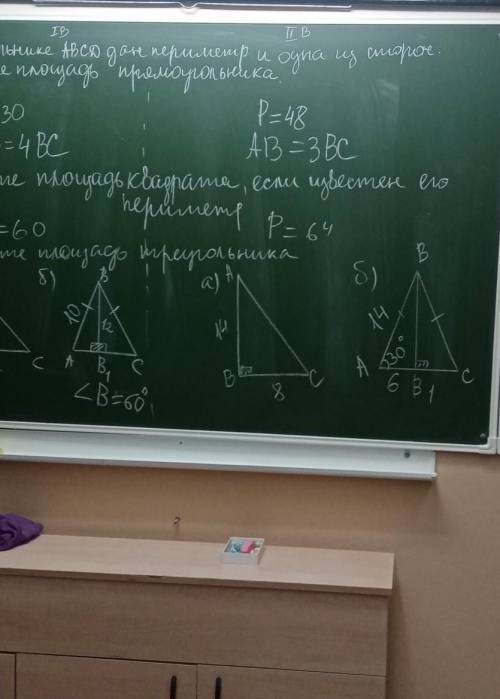 IВ
II В
льнике ABCD дан периметр и одна из сторон.
е площадь прямоугольника.
30
P=48
=4BC
AB=3BC
те площадь квадрата, если известен его
периметр
=60
P=64
те площадь треугольника
C
б)
B
10
12
A
B1
C
∠B=60°
а)
A
14
B
8
C
б)
B
14
30°
A
6
B1
C